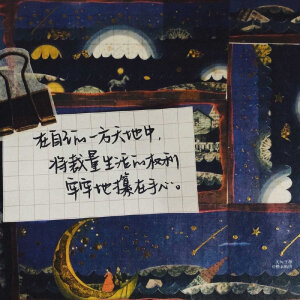 在自己的一方天地中,
将裁量生活的权利
牢牢地攥在手心。